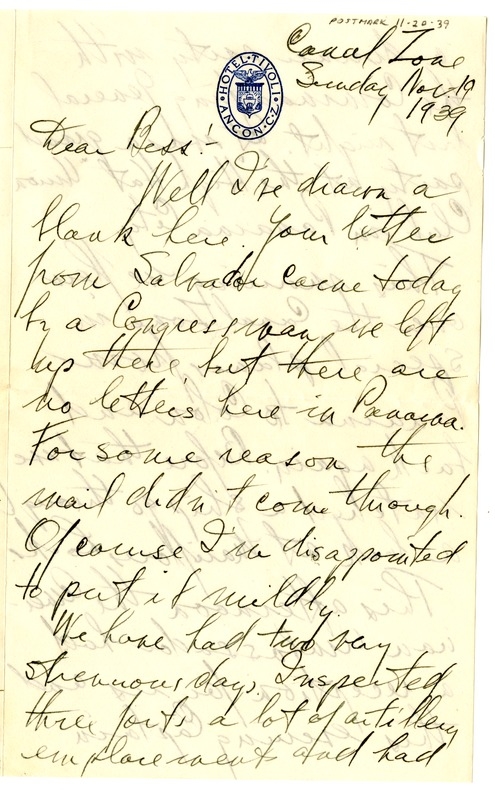 POSTMARK 11-20-39
Canal Zone
Sunday Nov. 19
1939
HOTEL TIVOLI
ANCON, C.Z.
Dear Bess:-
Well I've drawn a
blank here. Your letter
from Salvador came today
by a Congressman we left
up there but there are
no letters here in Panama.
For some reason the
mail didn't come through.
Of course I'm disappointed
to put it mildly.
We have had two very
strenuous days. Inspected
three forts a lot of artillery
emplacements and had